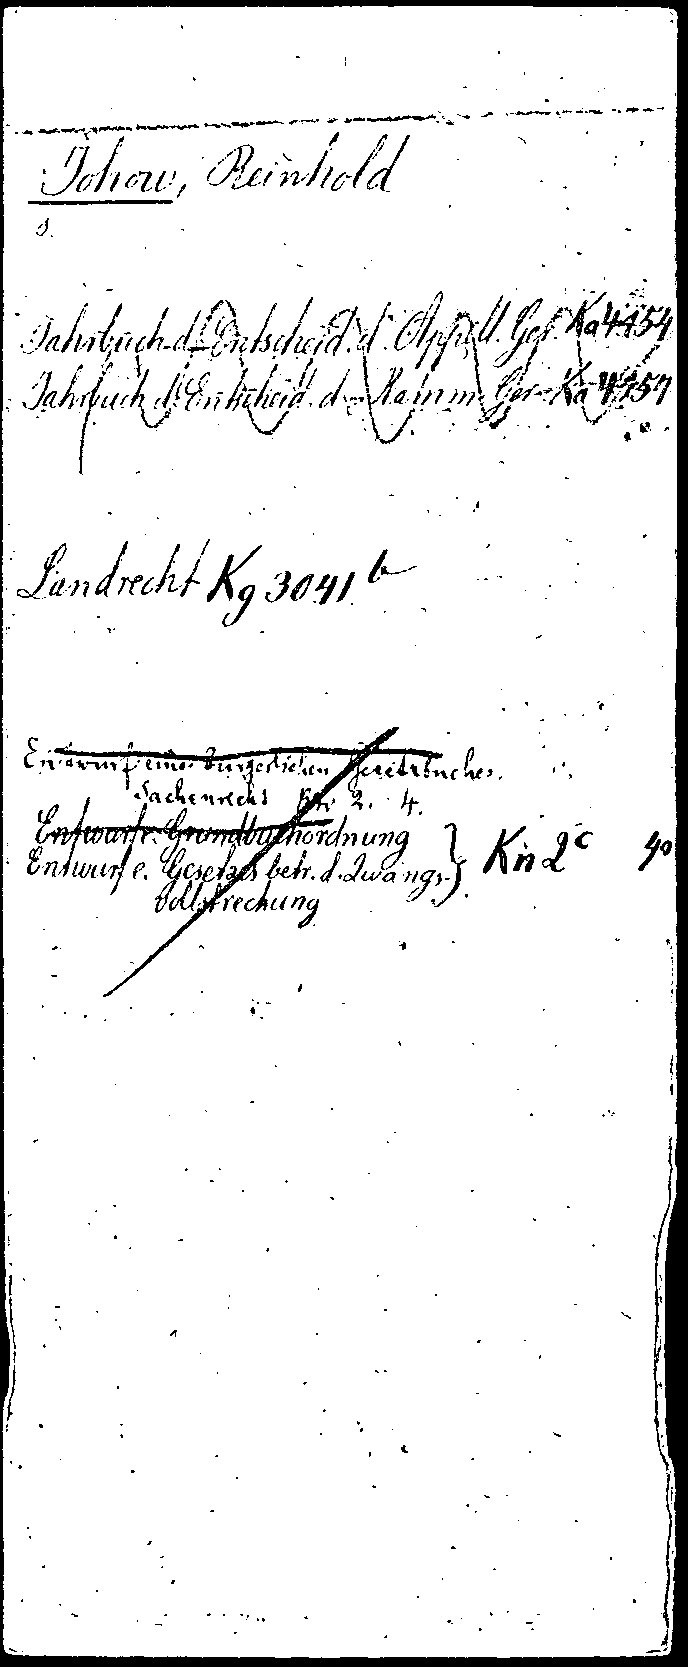 Johow, Reinhold
s.
Jahrbuch d. Entscheid. d. Appell. Ger. Ka 4454
Jahrbuch d. Entscheid. d. Kamm. Ger. Ka 4457
Landrecht Kg 3041 b
Entwurf eines bürgerlichen Gesetzbuches.
Sachenrecht 2. 4.
Entwurf e. Grundbuchordnung
Entwurf e. Gesetzes betr. d. Zwangs- } Kn 2 c 40
vollstreckung